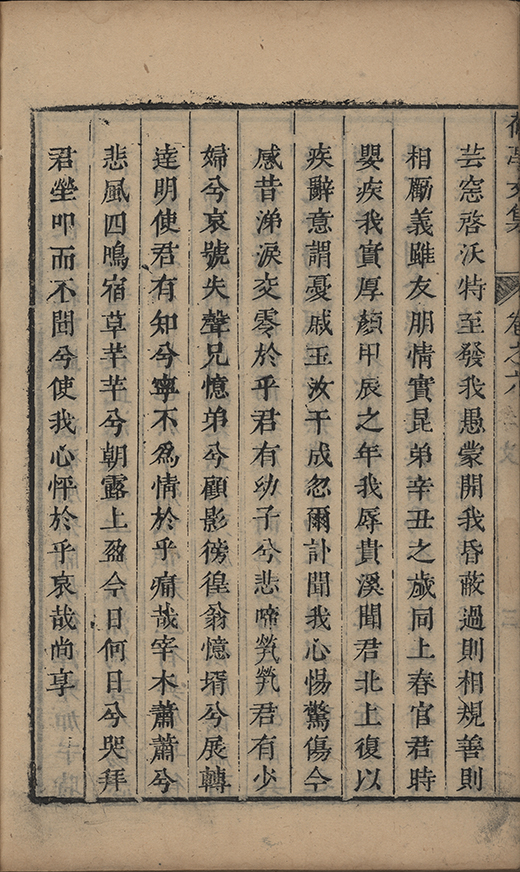 卷之六
芸窓啓沃特至發我愚蒙開我昏蔽過則相規善則
相勵義雖友朋情實昆弟辛丑之歲同上春官君時
嬰疾我實厚顏甲辰之年我辱貴溪聞君北上復以
疾辭意謂憂戚玉汝于成忽爾訃聞我心惕驚傷今
感昔涕淚交零於乎君有幼子兮悲啼煢煢君有少
婦兮哀號失聲兄憶弟兮顧影徬徨翁憶壻兮展轉
達明使君有知兮寧不爲情於乎痛哉宰木蕭蕭兮
悲風四鳴宿草芊芊兮朝露上盈今日何日兮哭拜
君塋叩而不聞兮使我心怦於乎哀哉尚享